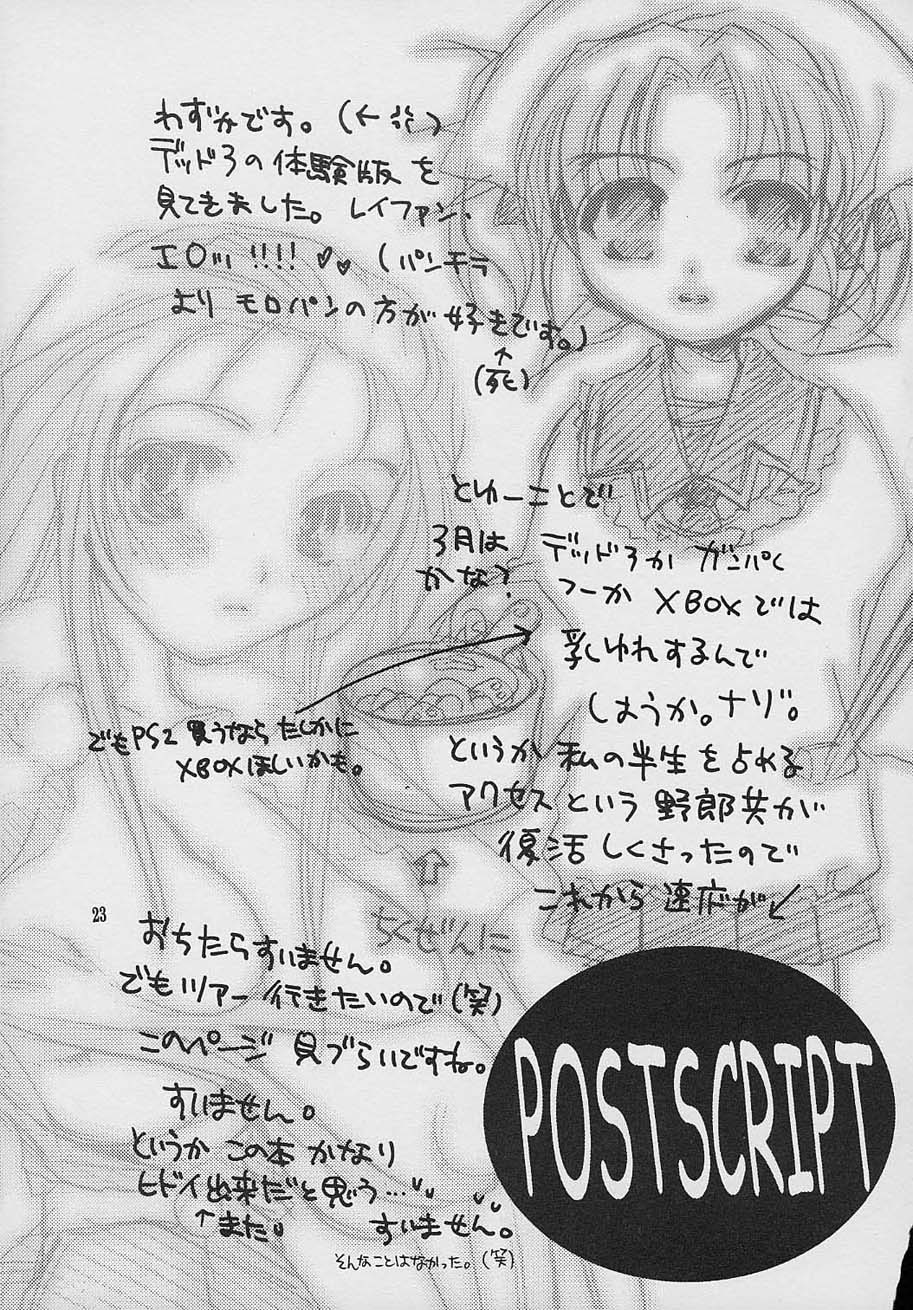 わずかです。(←
デッド3の体験版を
見てきました。レイファン、
エロッ!!!!♡♡(パンチラ
よりモロパンの方が好きです。)
↑
(死)
とゆーことで
3月は デッド3か ガンパレ
かな? つーか XBOXでは
乳ゆれするんで
しょうか。ナゾ。
でもPS2買うならたしかに
XBOXほしいかも。
というか私の半生を占める
アクセスという野郎共が
復活しくさったので
これから速応が↙
ちくぜんに
おちたらすいません。
でもツアー行きたいので(笑)
このページ 見づらいですね。
すいません。
というか この本 かなり
ヒドイ出来だと思う…
↑また すいません。
そんなことはなかった。(笑)
23
POSTSCRIPT